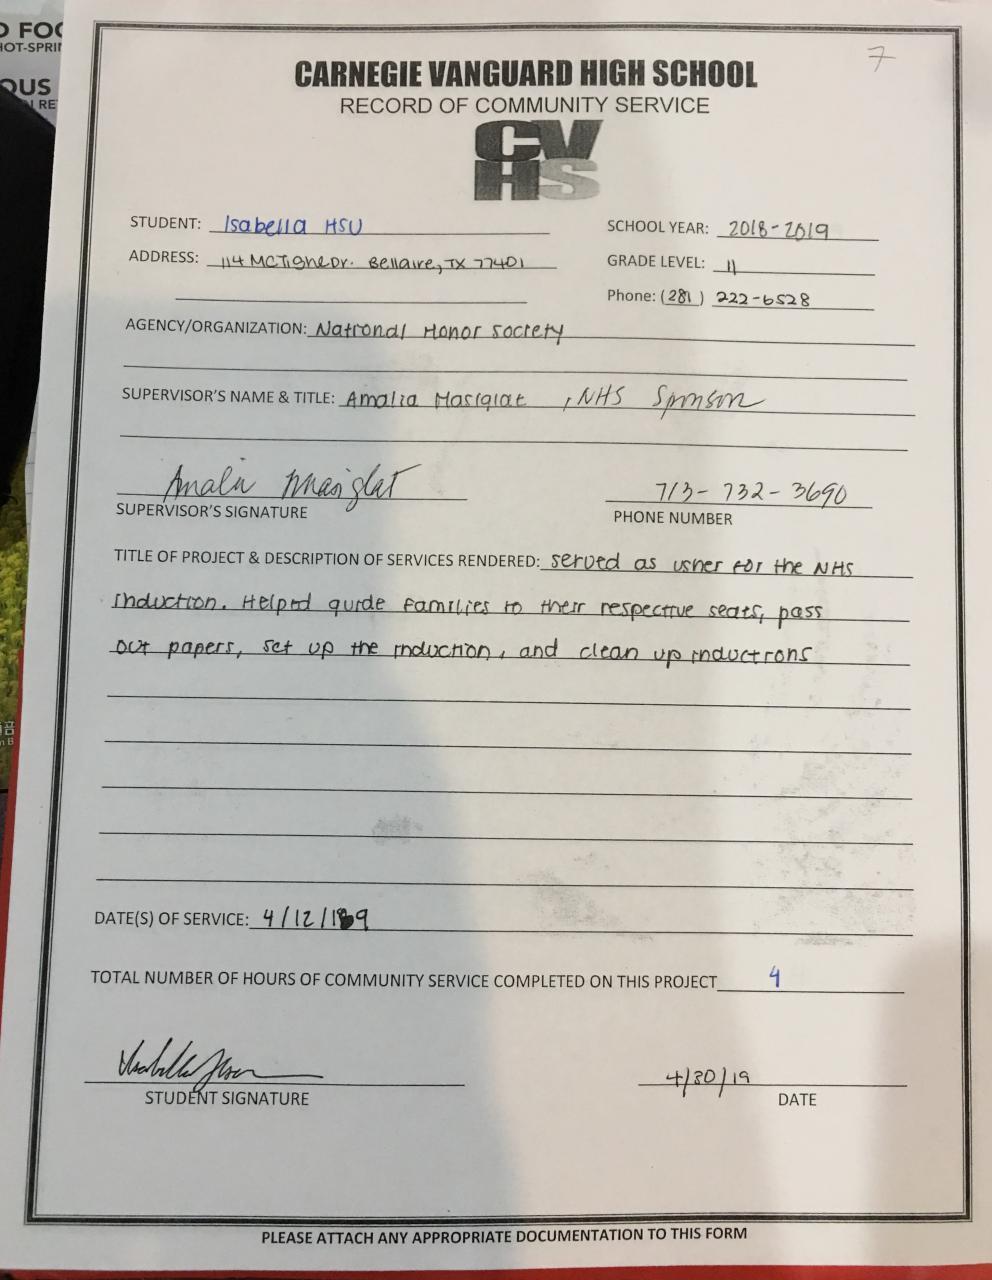 7
CARNEGIE VANGUARD HIGH SCHOOL
RECORD OF COMMUNITY SERVICE
CV
HS
STUDENT: Isabella HSU
SCHOOL YEAR: 2018-2019
ADDRESS: 114 McTighe Dr. Bellaire, TX 77401
GRADE LEVEL: 11
Phone: (281) 222-6528
AGENCY/ORGANIZATION: National Honor Society
SUPERVISOR'S NAME & TITLE: Amalia Masiglat , NHS Sponsor
Amalia Masiglat
713-732-3690
SUPERVISOR'S SIGNATURE
PHONE NUMBER
TITLE OF PROJECT & DESCRIPTION OF SERVICES RENDERED: served as usher for the NHS
induction. Helped guide families to their respective seats, pass
out papers, set up the induction, and clean up inductions
DATE(S) OF SERVICE: 4/12/19
TOTAL NUMBER OF HOURS OF COMMUNITY SERVICE COMPLETED ON THIS PROJECT 4
4/30/19
STUDENT SIGNATURE
DATE
PLEASE ATTACH ANY APPROPRIATE DOCUMENTATION TO THIS FORM